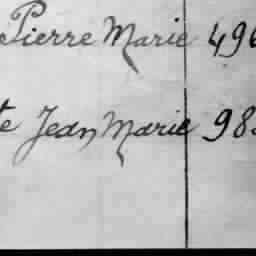 Pierre Marie 496
te Jean Marie 983